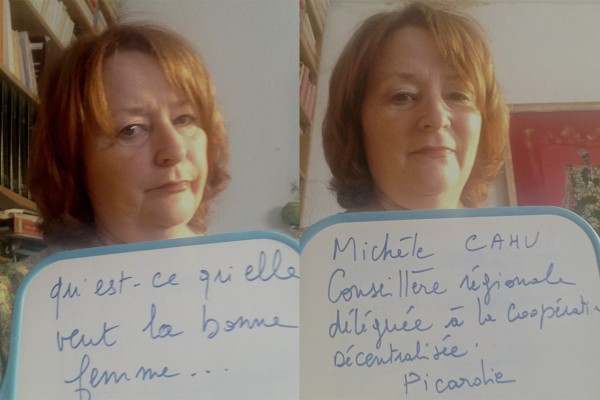 qu'est-ce qu'elle
veut la bonne
femme...
Michèle CAHU
Conseillère régionale
déléguée à la Coopérati
Décentralisée.
Picardie